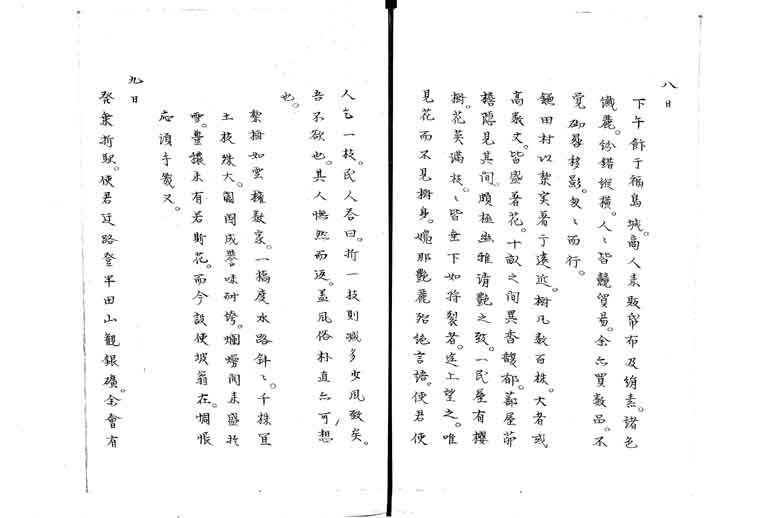 八日
下午飰于福島城。商人来販帛布及絹素。諸色
纎麗。紛錯縦横。人〻皆競貿易。余亦買数品。不
覚砌晷移影。匆〻而行。
鎌田村以紫実著于遠近。樹凡数百株。大者或
高数丈。皆盛着花。十畝之間異香馥郁。蔀屋茆
檐隠見其間。頗極幽雅清艶之致。一民屋有櫻
樹。花英満枝。〻皆垂下如将裂者。途上望之。唯
見花而不見樹身。婉那艶麗殆絶言語。使君使
人乞一枝。民人答曰。折一枝則減多少風致矣。
吾不欲也。其人憮然而返。盖風俗朴直亦可想
也。
梨樹如雲擁数家。一橋度水路斜〻。千株宜
土枝殊大。闔国成誉味耐誇。爛熳閑来盛於
雪。豊譲未有若斯花。而今設使坡翁在。惆悵
応須手幾叉。
九日
発桑折駅。使君迂路登半田山観銀礦。余會有